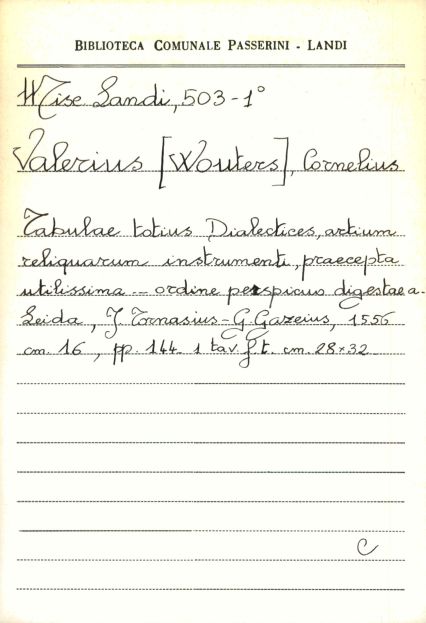 BIBLIOTECA COMUNALE PASSERINI - LANDI
Misc Landi, 503-1°
Valerius [Wouters], Cornelius
Tabulae totius Dialectices, artium
reliquarum instrumenti, praecepta
utilissima -- ordine perspicuo digestae a-
Leida, J. Tornasius - G. Gazeius, 1556
cm. 16, pp. 144. 1 tav. f. t. cm. 28×32
C